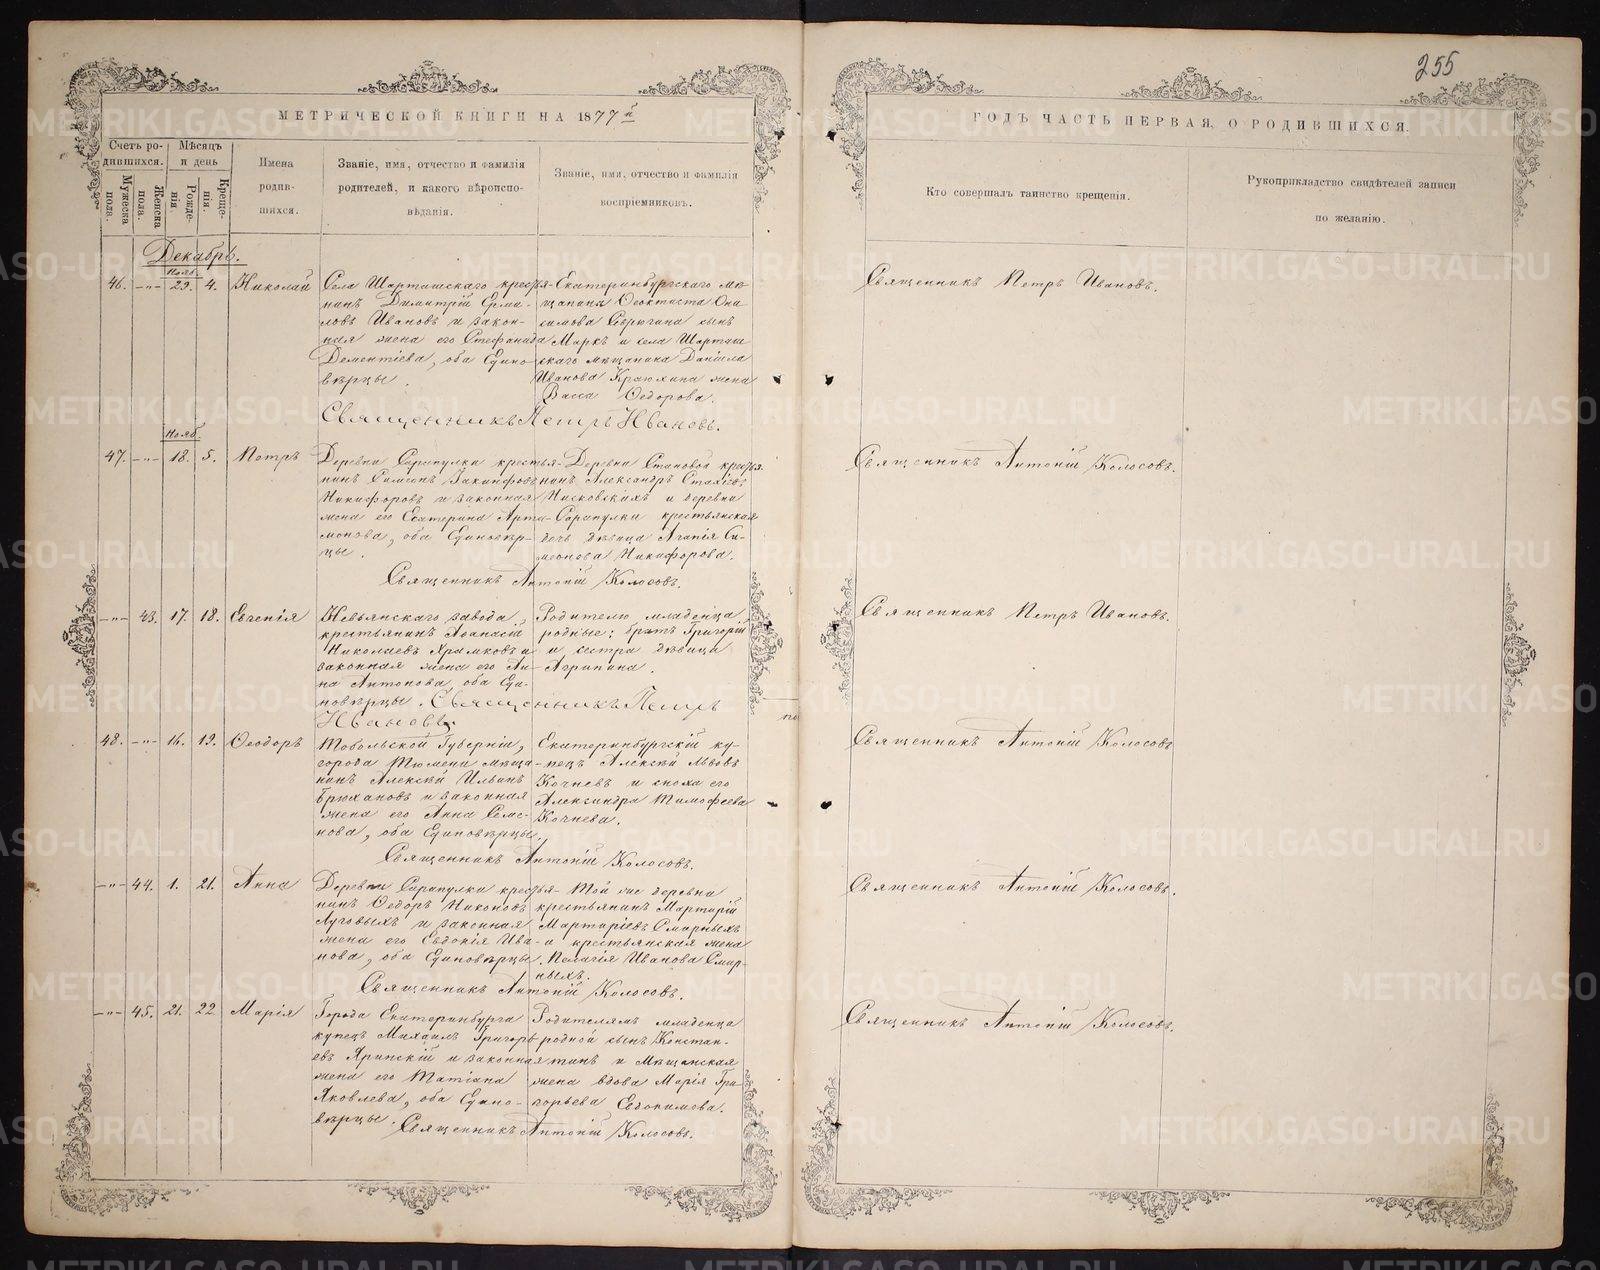 255
МЕТРИЧЕСКОЙ КНИГИ НА 1877й
ГОДЪ ЧАСТЬ ПЕРВАЯ, О РОДИВШИХСЯ.
Счетъ родившихся.
Мужеска пола.
Женска пола.
Мѣсяцъ и день
Рожденія.
Крещенія.
Имена родившихся.
Званіе, имя, отчество и фамилія родителей, и какого вѣроисповѣданія.
Званіе, имя, отчество и фамилія воспріемниковъ.
Кто совершалъ таинство крещенія.
Рукоприкладство свидѣтелей записи по желанію.
Декабрь.
Нояб.
46. -"- 29. 4. Николай
Села Шарташскаго крестья-
нинъ Димитрій Ерми-
ловъ Ивановъ и закон-
ная жена его Стефанида
Дементіева, оба Едино-
вѣрцы.
Екатеринбургскаго мѣ-
щанина Ѳеоктиста Они-
симова сынъ
Маркъ и села Шарташ
скаго мѣщанина Даніила
Иванова жена
Васса Ѳедорова.
Священникъ Петръ Ивановъ.
Священникъ Петръ Ивановъ.
Нояб.
47. -"- 18. 5. Петръ
Деревни Сарапулки крестья-
нинъ Симеонъ
Никифоровъ и законная
жена его Екатерина Арта-
монова, оба Единовѣр-
цы.
Деревни Становой крестья
нинъ Александръ
и деревни
Сарапулки крестьянская
дочь дѣвица Агапія Си-
меонова Никифорова.
Священникъ Антоній Колосовъ.
Священникъ Антоній Колосовъ.
-"- 43. 17. 18. Евгенія
Невьянскаго завода
крестьянинъ Аѳанасій
Николаевъ Храмковъ и
законная жена его Ан-
на Антонова, оба Еди-
новѣрцы. Священникъ Петръ
Ивановъ.
Родителю младенца
родные: братъ Григорій
и сестра дѣвица
Агрипина.
Священникъ Петръ Ивановъ.
48. -"- 16. 19. Ѳеодоръ
Тобольской Губерніи,
города Тюмени мѣща-
нинъ Алексѣй Ильинъ
Брюхановъ и законная
жена его Анна Семе-
нова, оба Единовѣрцы.
Екатеринбургскій ку-
пецъ Алексѣй Львовъ
Кочневъ и сноха его
Александра Тимофеева
Кочнева.
Священникъ Антоній Колосовъ.
Священникъ Антоній Колосовъ
-"- 44. 1. 21. Анна
Деревни Сарапулки крестья-
нинъ Ѳедоръ Никоновъ
Луговыхъ и законная
жена его Евдокія Ива-
нова, оба Единовѣрцы.
Той же деревни
крестьянинъ Мартирій
Мартиріевъ Смирныхъ
и крестьянская жена
Пелагія Иванова Смир-
ныхъ.
Священникъ Антоній Колосовъ.
Священникъ Антоній Колосовъ.
-"- 45. 21. 22 Марія
Города Екатеринбурга
купецъ Михаилъ Григорь
евъ Яринскій и законная
жена его Татіана
Яковлева, оба Едино-
вѣрцы.
Родителямъ младенца
родной сынъ Констан-
тинъ и Мѣщанская
жена вдова Марія Гри-
горьева Евдокимова.
Священникъ Антоній Колосовъ.
Священникъ Антоній Колосовъ.
METRIKI.GASO-URAL.RU